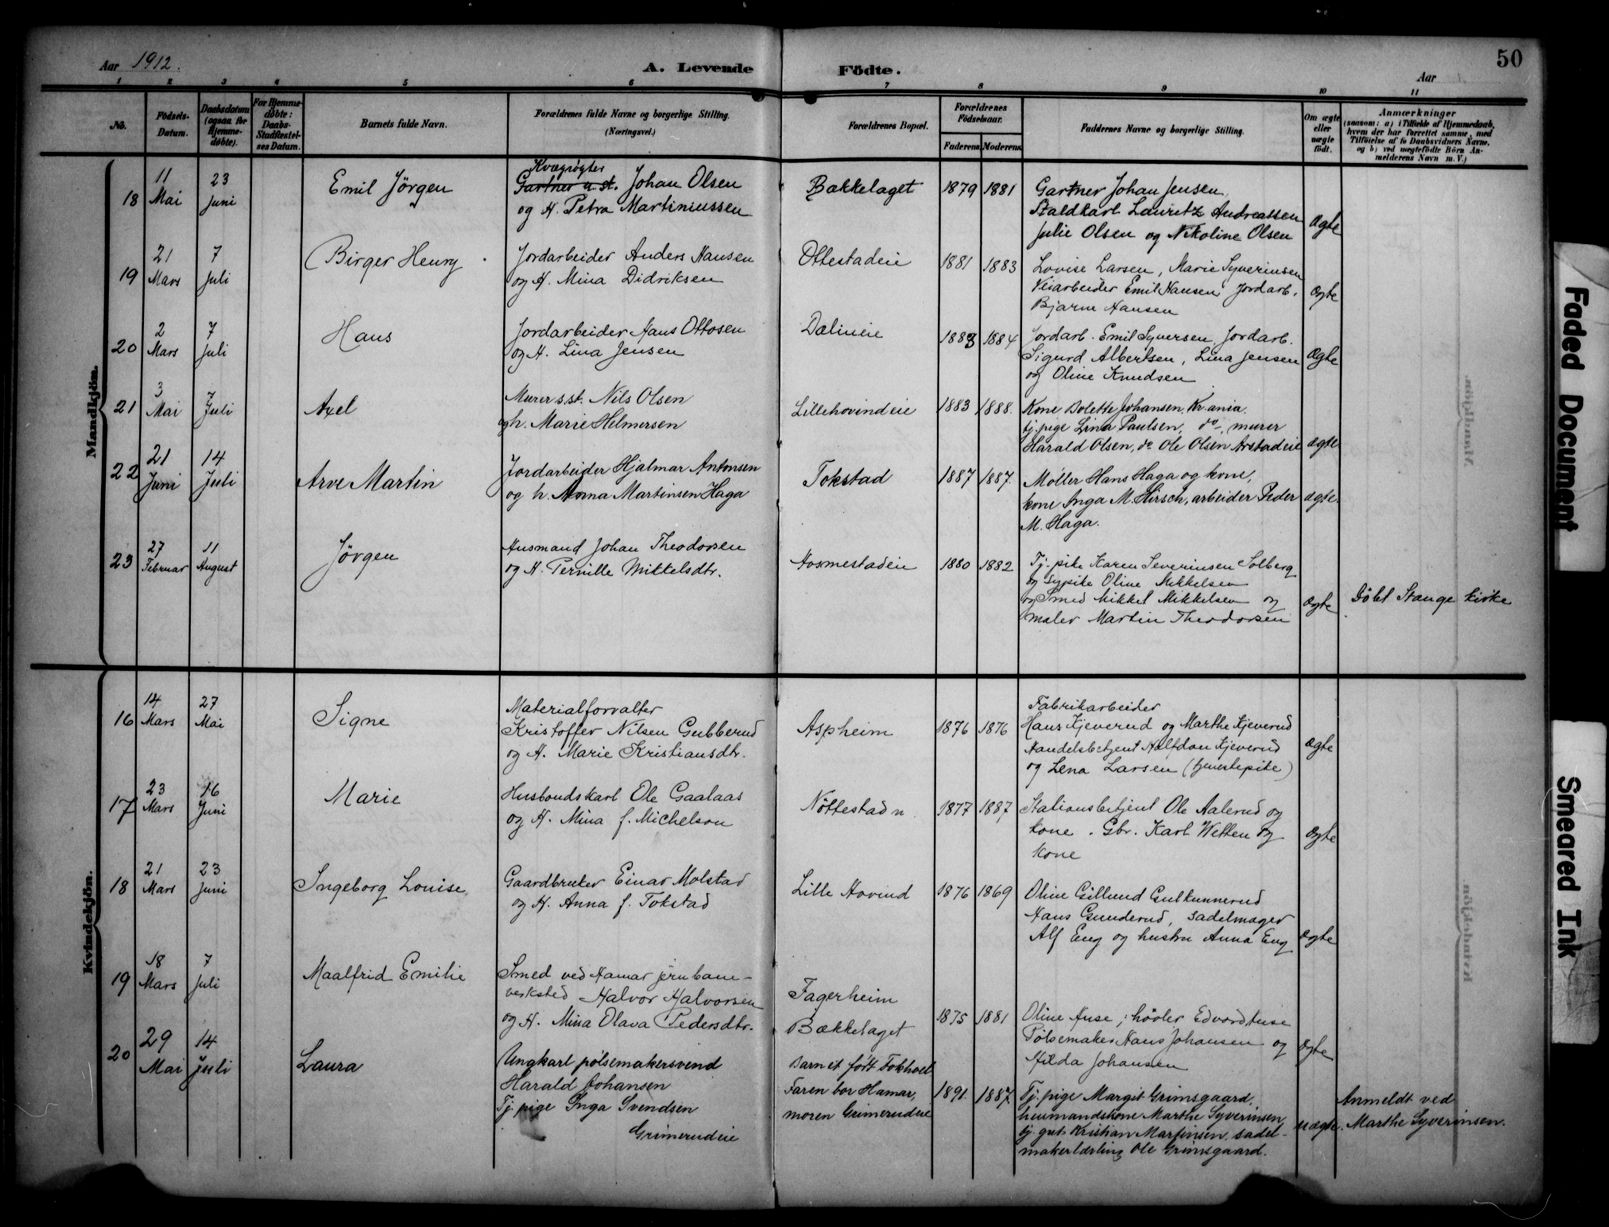 50
Aar 1912.
A. Levende Födte.
Aar
1 2 3 4 5 6 7 8 9 10 11
No.
Födsels-
Datum.
Daabsdatum
(ogsaa for
Hjemme-
döbte).
For Hjemme-
döbte:
Daabs-
Stadfæstel-
ses Datum.
Barnets fulde Navn.
Forældrenes fulde Navne og borgerlige Stilling.
(Næringsvei.)
Forældrenes Bopæl.
Forældrenes
Födselsaar.
Faderens Moderens
Faddernes Navne og borgerlige Stilling.
Om ægte
eller
uægte
födt.
Anmærkninger
(saasom: a) i Tilfælde af Hjemmedaab,
hvem der har forrettet samme, med
Tilföielse af to Daabsvidners Navne,
og b) ved uægtefödte Börn An-
melderens Navn m. V.)
Mandkjön.
18
11
Mai
23
Juni
Emil Jörgen
Kvægrögter
Gartner u.st. Johan Olsen
og H. Petra Martiniussen
Bakkelaget
1879 1881
Gartner Johan Jensen,
Staldkarl Lauritz Andreassen
Julie Olsen og Nikoline Olsen
Ægte
19
21
Mars
7
Juli
Birger Henry
Jordarbeider Anders Hansen
og H. Mina Didriksen
Ottestadeie
1881 1883
Lovise Larsen, Marie Syverinsen
Veiarbeider Emil Hansen, Jordarb.
Bjarne Hansen
Ægte
20
2
Mars
7
Juli
Hans
Jordarbeider Hans Ottosen
og H. Lina Jensen
Dælineie
1883 1884
Jordarb. Emil Syversen, Jordarb.
Sigurd Albertsen, Lina Jensen
og Oline Knudsen
Ægte
21
3
Mai
7
Juli
Axel
Murer s.st. Nils Olsen
og h. Marie Helmersen
Lillehovindeie
1883 1888.
Kone Bolette Johansen, Kr.ania.
tj.pige Lina Paulsen, do, murer
Harald Olsen, do Ole Olsen Arstadeie
ægte
22
21
Juni
14
Juli
Arve Martin
Jordarbeider Hjalmar Antonsen
og h. Anna Martinsen Haga
Tokstad
1887 1887.
Møller Hans Haga og kone,
kone Inga M. Hirsch, arbeider Peder
M. Haga.
ægte.
23
27
Februar
11
August
Jörgen
Husmand Johan Theodorsen
og H. Pernille Mikkelsdtr.
Hosmestadeie
1880 1882
Tj. pike Karen Severinsen Solberg
og Sypike Oline Mikkelsen
og Smed Mikkel Mikkelsen og
maler Martin Theodorsen
Ægte
Döbt Stange kirke
Kvindekjön.
16
14
Mars
27
Mai
Signe
Materialforvalter
Kristoffer Nilsen Gubberud
og H. Marie Kristiansdtr.
Aspheim
1876 1876
Fabrikarbeider
Hans Kjeverud og Marthe Kjeverud
Handelsbetjent Halfdan Kjeverud
og Lena Larsen (tjenestepike)
Ægte
17
23
Mars
16
Juni
Marie
Husbondskarl Ole Gaalaas
og H. Mina f. Michelson
Nöttestad n
1877 1887
Stationsbetjent Ole Aalerud og
kone. Gbr. Karl Wetten og
kone
Ægte
18
21
Mars
23
Juni
Ingeborg Louise
Gaardbruker Einar Molstad
og H. Anna f. Tokstad
Lille Hovind
1876 1869
Oline Gillund Gulkunnerud
Hans Gunderud, sadelmager
Alf Eng og hustru Anna Eng
Ægte
19
18
Mars
7
Juli
Maalfrid Emilie
Smed ved Hamar jernbane-
verksted Halvor Halvorsen
og H. Mina Olava Pedersdtr.
Fagerheim
Bækkelaget
1875 1881
Oline Huse, hövler Edvard Huse
Pölsemaker Hans Johansen og
Hilda Johansen
Ægte
20
29
Mai
14
Juli
Laura
Ungkarl pölsemakersvend
Harald Johansen
Tj. pige Inga Svendsen
Grimerudeie
Barnet født Tokhoel
Faren bor Hamar,
moren Grimerudeie
1891. 1887.
Tj. pige Margit Grimsgaard,
husmandskone Marthe Syverinsen,
tj. gut Kristian Martinsen, sadel-
makerlærling Ole Grimsgaard.
uægte.
Anmeldt ved
Marthe Syverinsen.
Faded Document
Smeared Ink